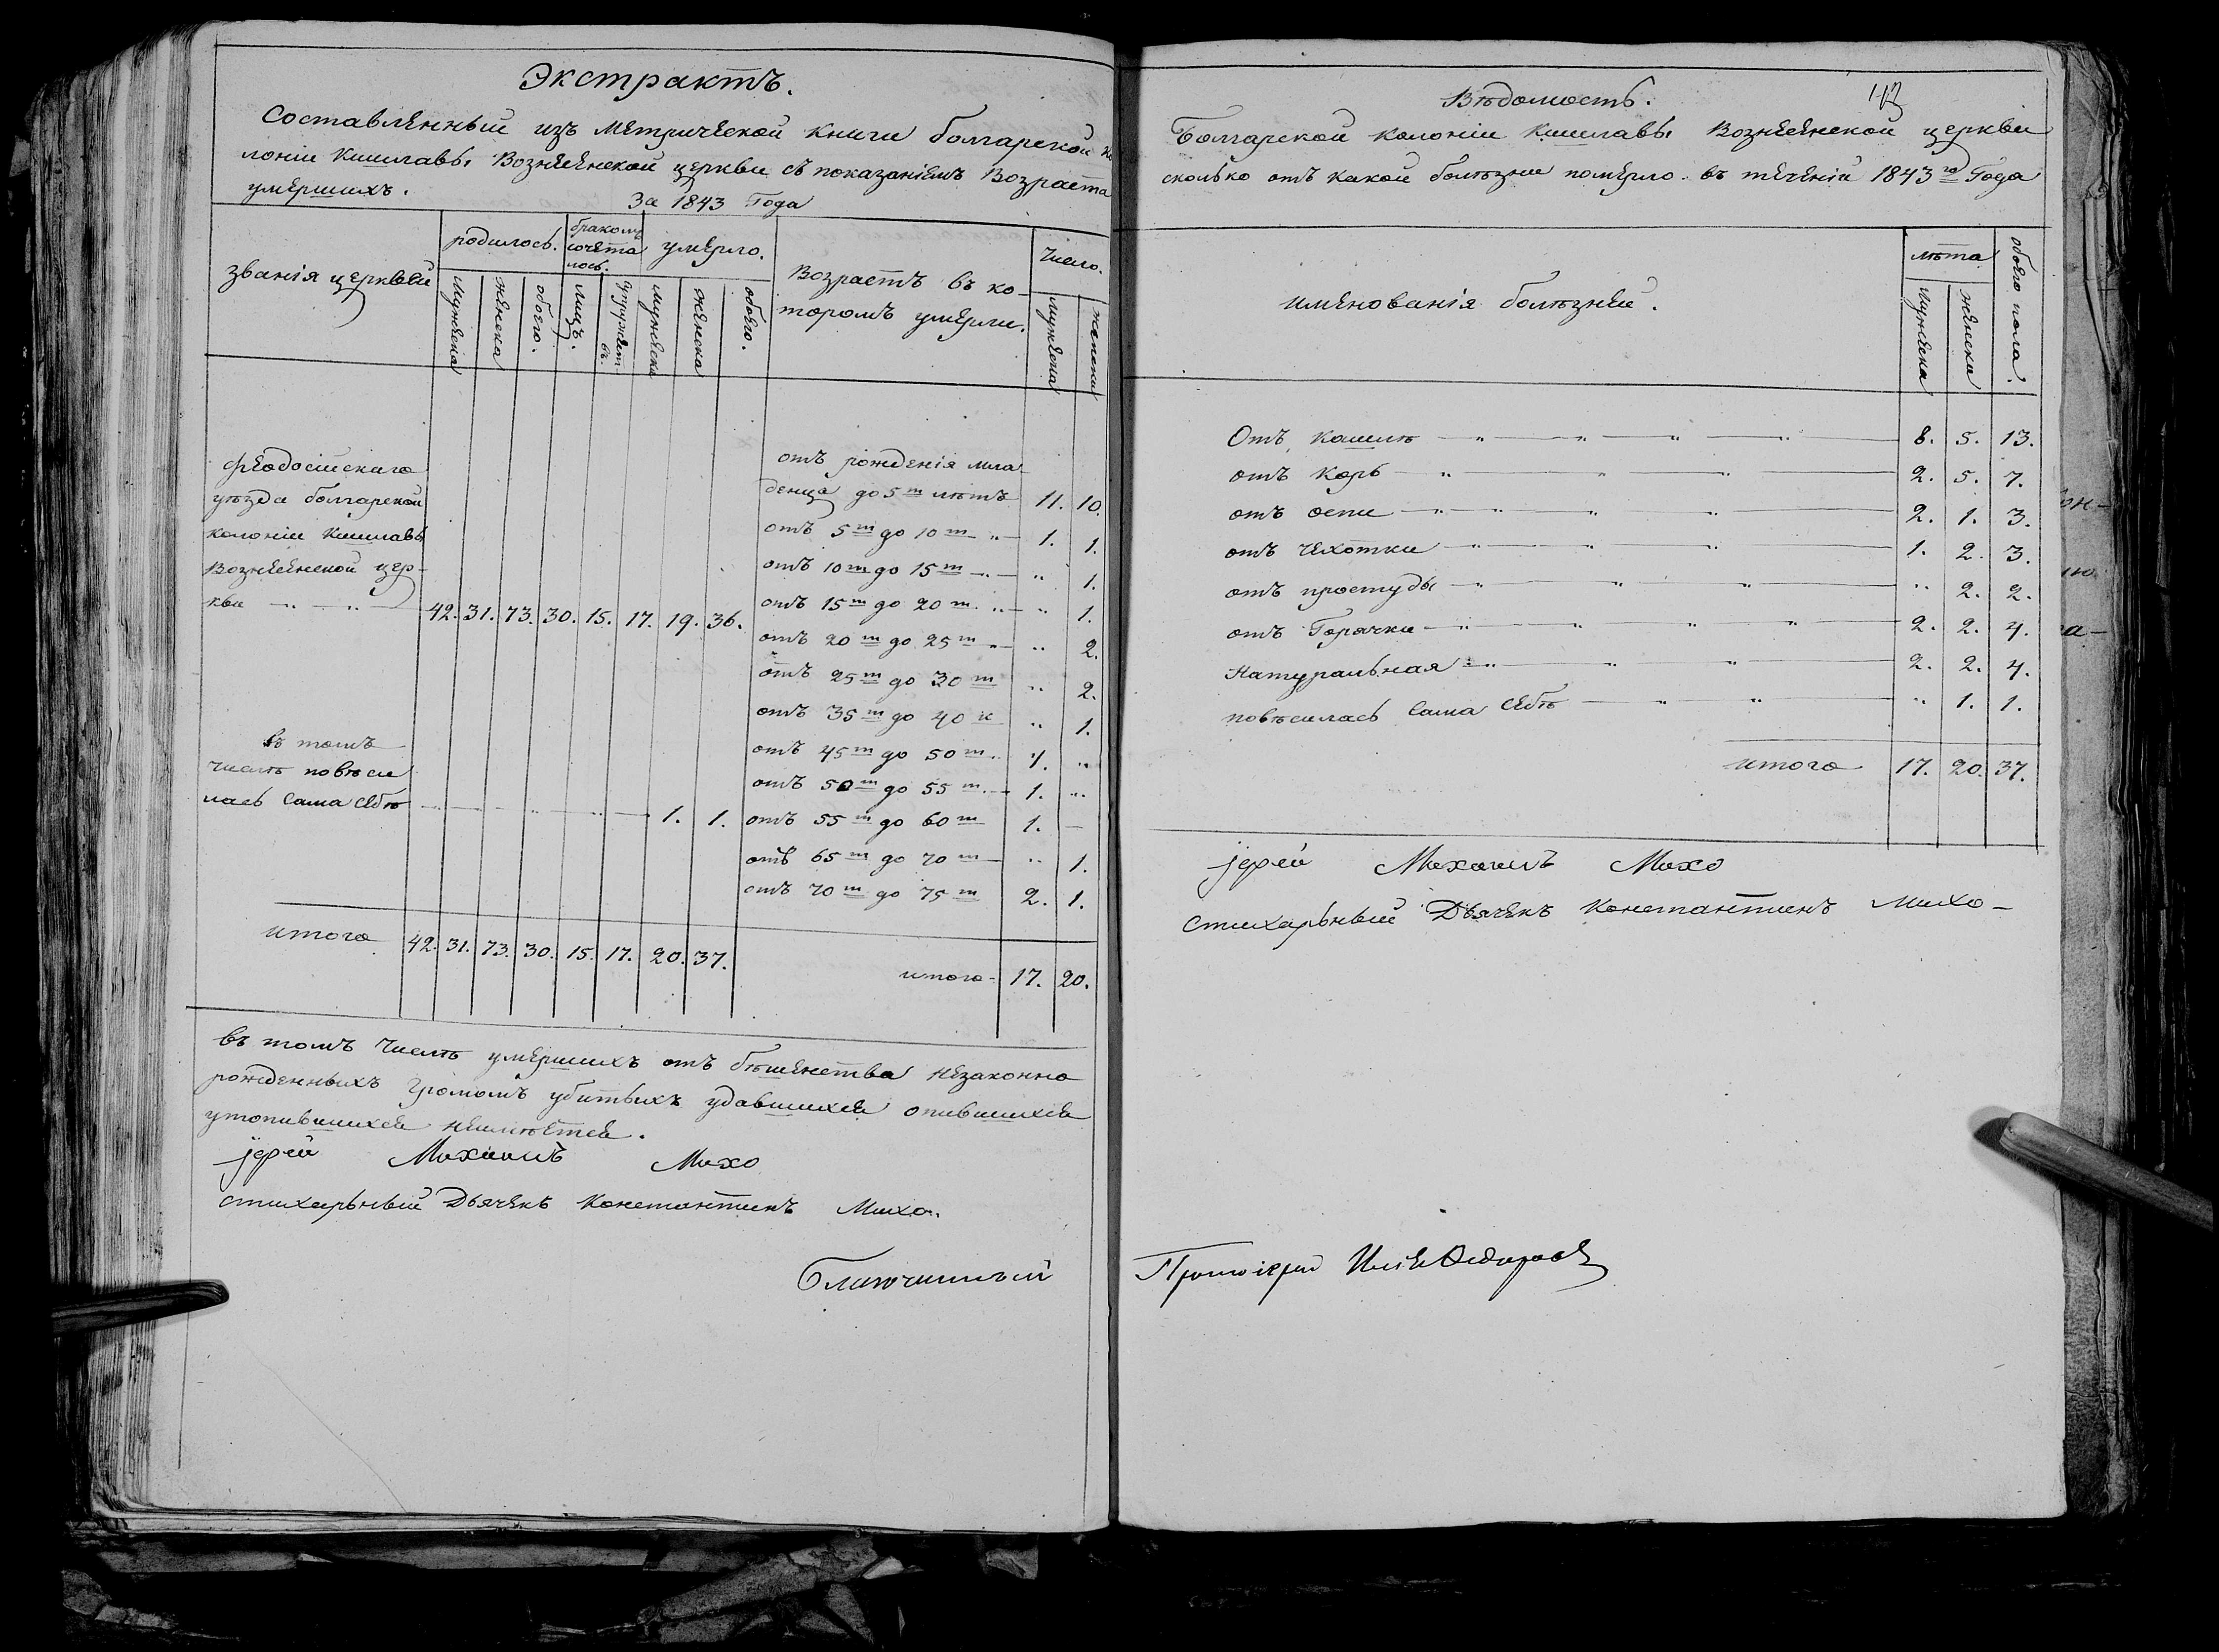 Экстрактъ.
Составленный изъ Метрической книги болгарской ко
лоніи Кишлавы Вознесенской церкви съ показаніемъ Возраста
умершихъ.
За 1843 Года
званія церквей
родилось.
бракомъ сочета лось.
умерло.
Возрастъ въ ко-
торомъ умерли.
Число.
мужеска
женска
обоего.
лицъ.
супружест въ.
мужеска
женска
обоего.
мужеска
женска
Феодосійскаго
уѣзда болгарской
колоніи Кишлавы
Вознесенской цер-
кви 42. 31. 73. 30. 15. 17. 19. 36.
отъ рожденія мла
денца до 5 т лѣтъ 11. 10.
отъ 5 т до 10 т " 1. 1.
отъ 10 т до 15 т " " 1.
отъ 15 т до 20 т. " " 1.
отъ 20 т до 25 т " " 2.
отъ 25 т до 30 т " 2.
отъ 35 т до 40 к " 1.
отъ 45 т до 50 т " 1. "
отъ 50 т до 55 т. 1. "
въ томъ
числѣ повѣси
лась сама себѣ 1. 1.
отъ 55 т до 60 т 1. —
отъ 65 т до 70 т " 1.
отъ 70 т до 75 т 2. 1.
итого 42. 31. 73. 30. 15. 17. 20. 37.
итого 17. 20.
въ томъ числѣ умершихъ отъ бѣшенства незаконно
рожденныхъ громомъ убитыхъ удавшихся опившихся
утопившихся неимѣется.
Іерей Михаилъ Михо
стихарный Дьячекъ Константинъ Михо.
Благочинный
Вѣдомость.
Болгарской колоніи Кишлавы Вознесенской церкви
сколько отъ какой болѣзни померло въ теченіи 1843 го Года
именованія болѣзней.
лѣта
мужеска
женска
обоего пола.
Отъ кашлѣ 8. 5. 13.
отъ Корь 2. 5. 7.
отъ оспи 2. 1. 3.
отъ чехотки 1. 2. 3.
отъ простуды " 2. 2.
отъ Горячки 2. 2. 4.
Натуральная 2. 2. 4.
повѣсилась сама себѣ " 1. 1.
итого 17. 20. 37.
Іерей Михаилъ Михо
стихарьный Дьячекъ Константинъ Михо-
Протоіерей